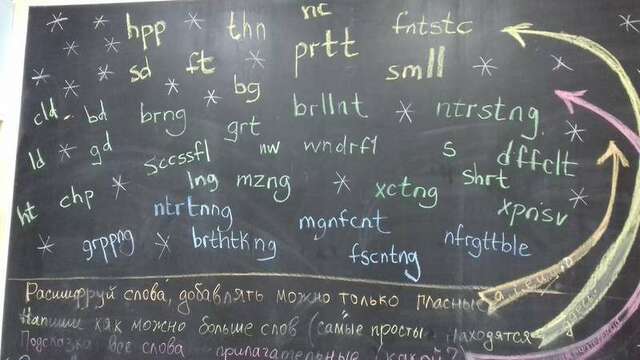 hpp thn nc fntstc
sd ft prtt smll
bg
cld bd brng grt brllnt ntrstng
ld gd sccssfl nw wndrfl s dffclt
ht chp lng mzng xctng shrt
ntrtnng mgnfcnt xpnsv
grppng brthtkng fscntng nfrgttble
Расшифруй слова, добавлять можно только гласные
Напиши как можно больше слов (самые просты находятся
Подсказка все слова прилагательные (какой?)